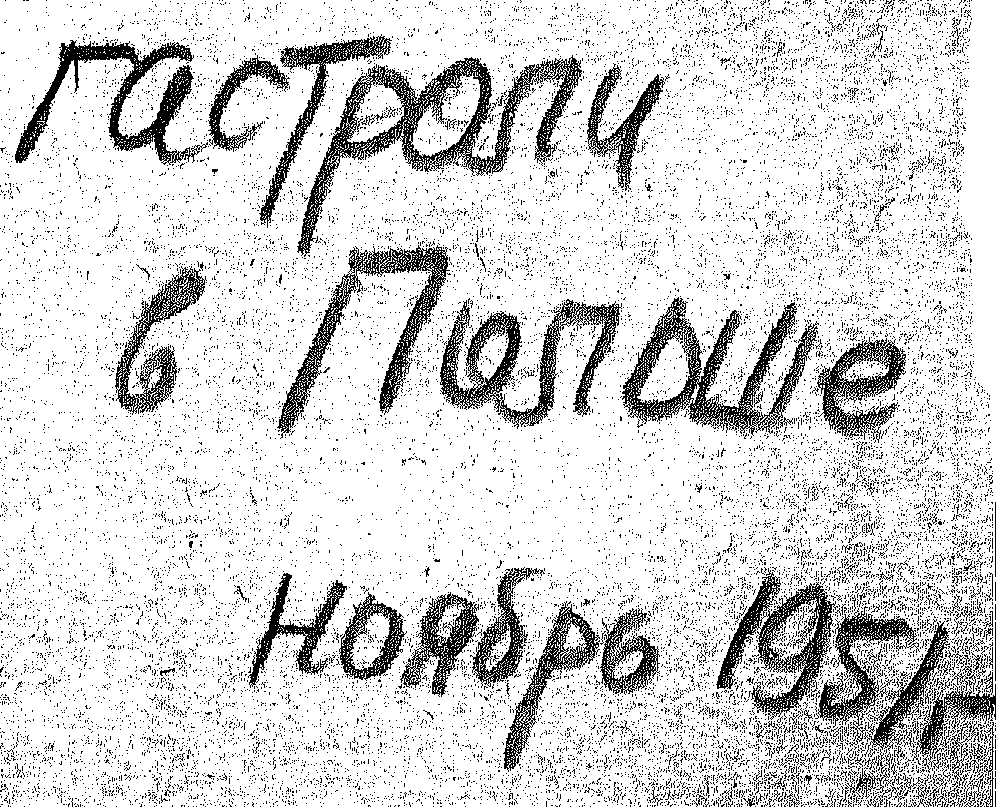 Гастроли
в Польше
Ноябрь 1951 г